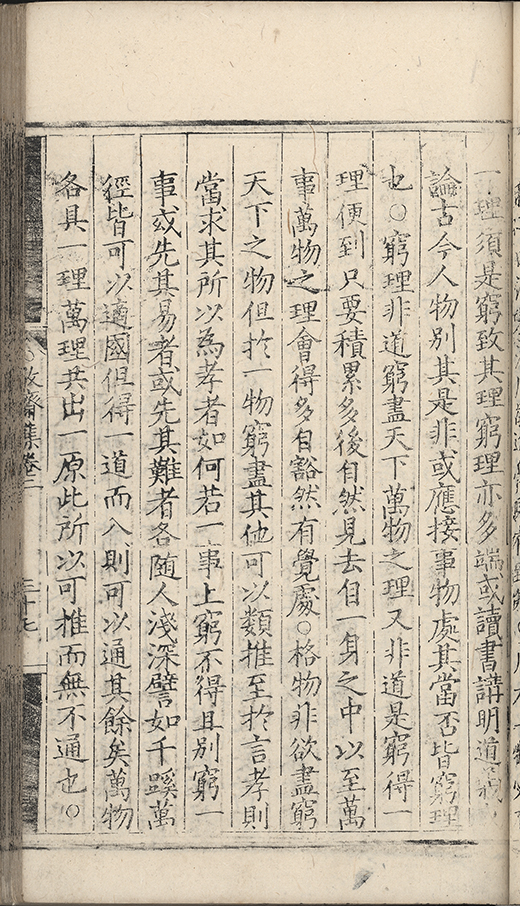 一理須是窮致其理窮理亦多端或讀書講明道義
論古今人物別其是非或應接事物處其當否皆窮理
也○窮理非道窮盡天下萬物之理又非道是窮得一
理便到只要積累多後自然見去自一身之中以至萬
事萬物之理會得多自豁然有覺處○格物非欲盡窮
天下之物但於一物窮盡其他可以類推至於言孝則
當求其所以為孝者如何若一事上窮不得且別窮一
事或先其易者或先其難者各随人淺深譬如千蹊萬
徑皆可以適國但得一道而入則可以通其餘矣萬物
各具一理萬理共出一原此所以可推而無不通也○
齋集卷二
三十七